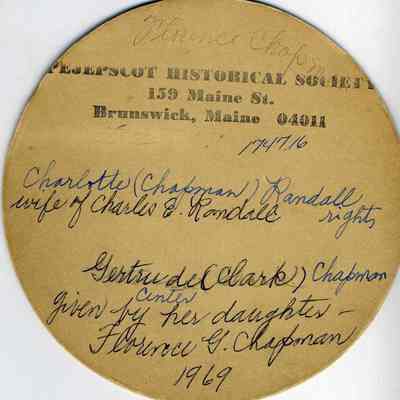 Florence Chapm
PEJEPSCOT HISTORICAL SOCIETY
159 Maine St.
Brunswick, Maine 04011
1747.16
Charlotte (Chapman) Randall
wife of Charles E. Randall rights
Gertrude (Clark) Chapman
center
given by her daughter –
Florence G. Chapman
1969